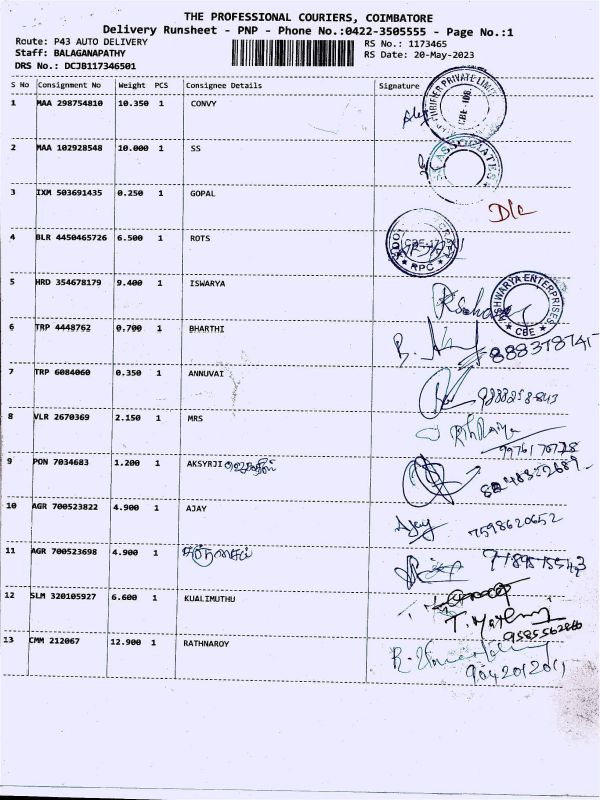 THE PROFESSIONAL COURIERS, COIMBATORE
Delivery Runsheet - PNP - Phone No.:0422-3505555 - Page No.:1
Route: P43 AUTO DELIVERY
RS No.: 1173465
Staff: BALAGANAPATHY
RS Date: 20-May-2023
DRS No.: DCJB117346501
S No Consignment No Weight PCS Consignee Details Signature
1 MAA 298754810 10.350 1 CONVY
2 MAA 102928548 10.000 1 SS
ASSOCIATES
3 IXM 503691435 0.250 1 GOPAL
D/c
4 BLR 4450465726 6.500 1 ROTS
RPC
5 HRD 354678179 9.400 1 ISWARYA
AISHWARYA ENTERPRISES
CBE
6 TRP 4448762 0.700 1 BHARTHI
7 TRP 6084060 0.350 1 ANNUVAI
8 VLR 2670369 2.150 1 MRS
9 PON 7034683 1.200 1 AKSYRJI
10 AGR 700523822 4.900 1 AJAY Ajay 7598620652
11 AGR 700523698 4.900 1
12 SLM 320105927 6.600 1 KUALIMUTHU
9585562866
13 CMM 212067 12.900 1 RATHNAROY